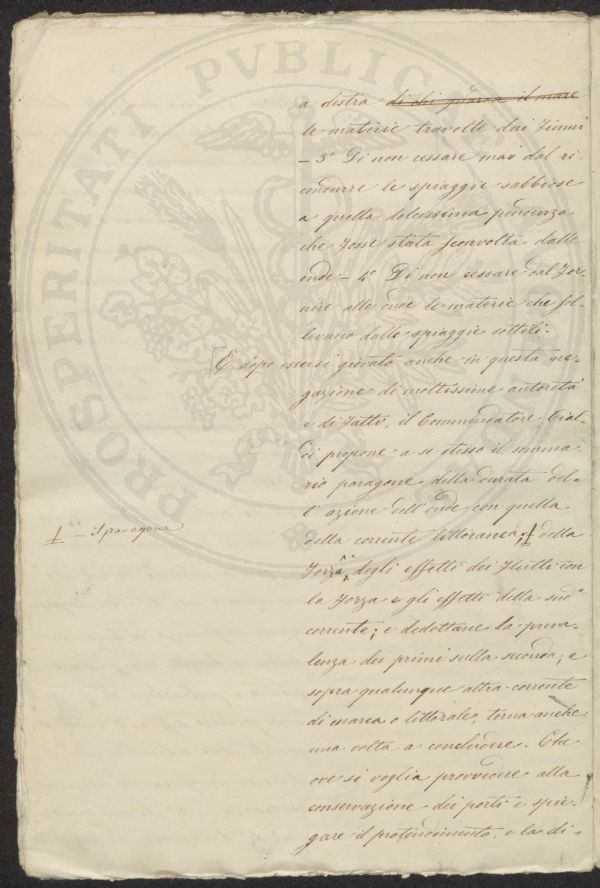 PROSPERITATI PVBLICAE
a destra di chi guarda il mare
le materie travolte dai fiumi
– 3º Di non cessare mai dal ri-
condurre le spiaggie sabbiose
a quella dolcissima pendenza
che fosse stata sconvolta dalle
onde – 4º Di non cessare dal for-
nire alle onde le materie che sol-
levano dalle spiaggie sottili.
E dopo essersi giovato anche in questa ne-
gazione di moltissime autorità
e di fatti, il Commendatore Cial-
di propone a se stesso il somma-
rio paragone della durata del-
l'azione dell'onde con quella
della corrente littoranea, ⊥ della
⊥ – il paragone
forza degli effetti dei flutti con
la forza e gli effetti della sudª
corrente; e dedottane la preva-
lenza dei primi sulla seconda, e
sopra qualunque altra corrente
di marea o littorale, torna anche
una volta a concludere. Che
ove si voglia provvedere alla
conservazione dei porti e spie-
gare il protendimento, e la di-